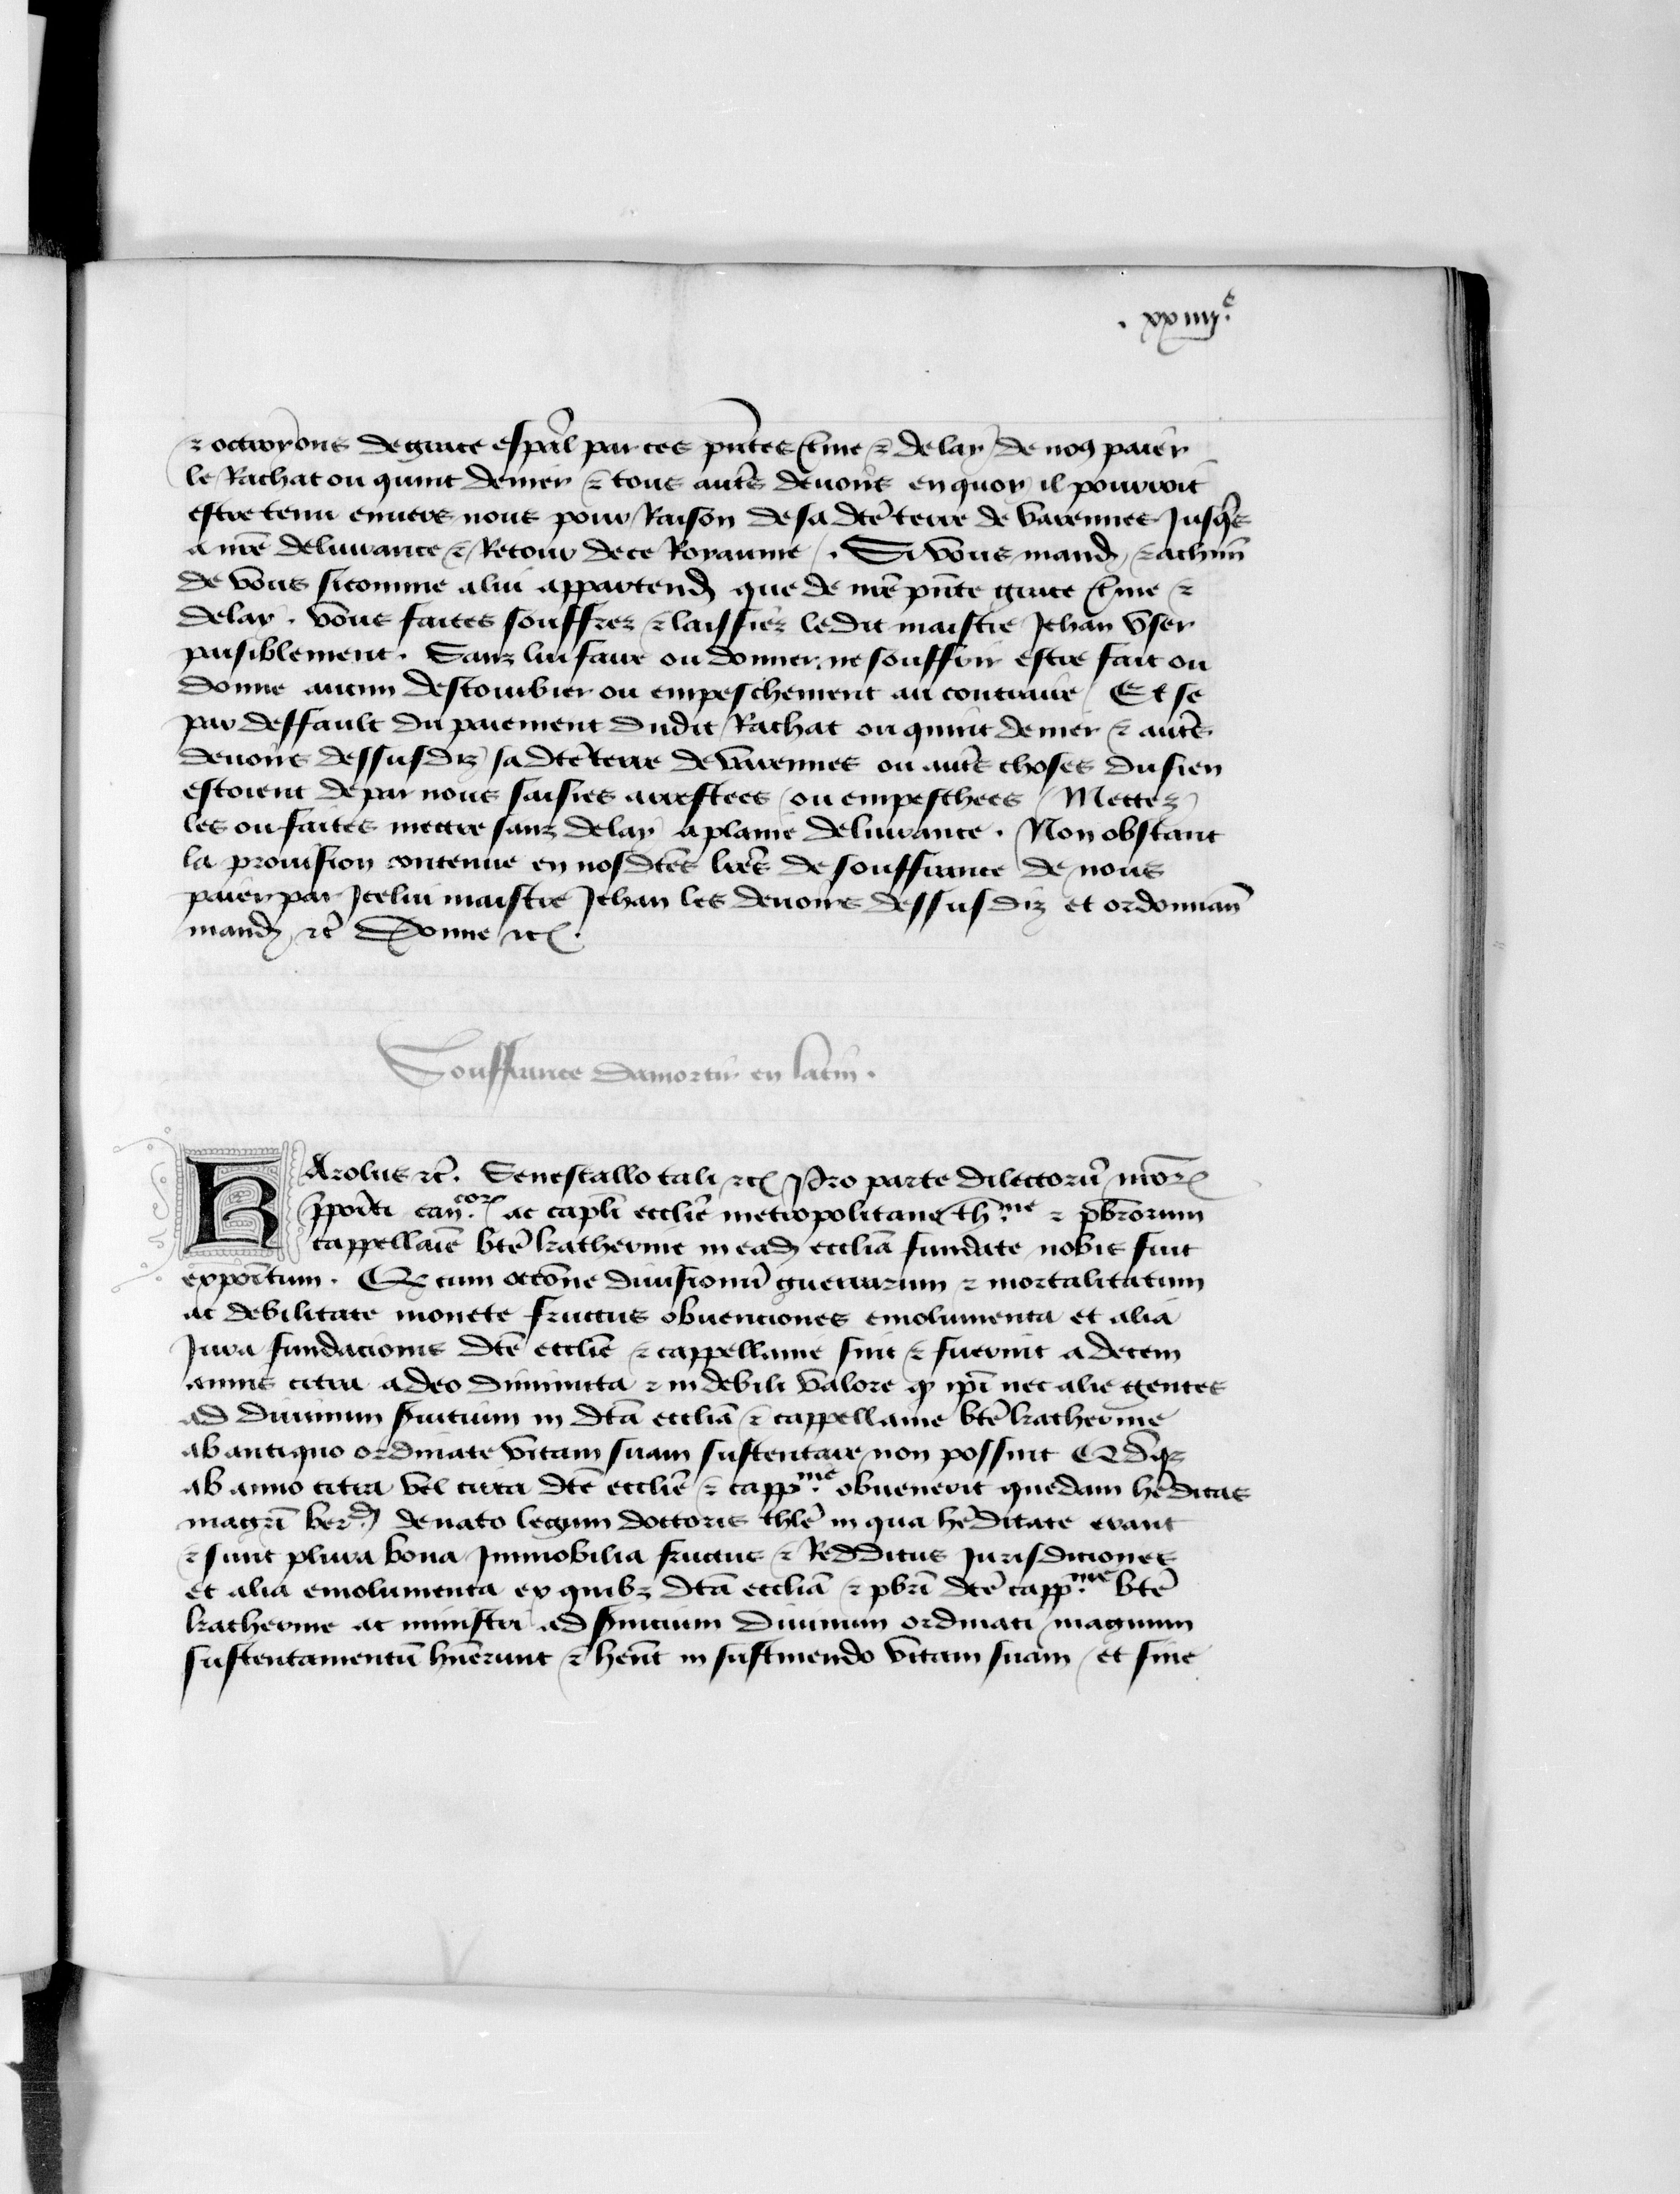 . xxiiii.e
⁊ octroyons de grace esp̄al par ces pn̄tes t̄me ⁊ delay de no9 paier
le Rachat ou quint denier ⁊ tous autr̄s deuoirs en quoy il pourroit
estre tenu enuers nous pour Raison de sa dcē terre de varennes Jusq̄s
a nr̄e deliurance ⁊ Retour de ce Royaume . Si vous mand̄ ⁊ achun̄
de vous sicomme a lui appartend̄ que de nr̄e pn̄te grace t̄me ⁊
delay . vous faites souffrez ⁊ laissiez ledit maistre Jehan vser
paisiblement . Sanz lui faire ou donner ne souffrir estre fait ou
donne aucun destourbier ou empeschement au contraire Et se
par deffault du paiement dudit Rachat ou quint denier ⁊ autr̄s
deuoirs dessusdiz sa dcē terre de varennes ou autr̄s choses du sien
estoient de par nous saisies arrestees ou empeschees Mettez
les ou faites mettre sanz delay a plaine deliurance . Non obstant
la prouision contenue en nosdcēs lrēs de souffrance de nous
paier par Jcelui maistre Jehan les deuoirs dessusdiz et ordonnan̄
mand̄ ⁊c̄ Donne ⁊c̄ .
Souffrance damortir en latin .
Karolus ⁊c̄ . Senescallo tali ⁊c̄ Pro parte dilectorū nr̄oꝝ
p̄poiti can.coꝝ ac capl̄i eccliē metropolitane th.me ⁊ pb̄rorum
cappellanīe btē katherine in ead̄ eccliā fundate nobis fuit
expoītum . Qꝫ cum occōne diuisionū guerrarum ⁊ mortalitatum
ac debilitate monete fructus obuenciones emolumenta et alia
Jura fundacionis dcē eccliē ⁊ cappellanie sint ⁊ fuerint a decem
annis citra adeo diminuta ⁊ in debili valore ꝙ ip̄i nec alie gentes
ad diuinum s̄uicium in dcā eccliā ⁊ cappellanie btē katherine
ab antiquo ordinate vitam suam sustentare non possint Qd̄qꝫ
ab anno citra vel circa dcē eccliē ⁊ capp.nie obuenerit quedam hēditas
magrī Ber.d̄ de nato legum doctoris thlē in qua hēditate erant
⁊ sunt plura bona Jmmobilia fructus ⁊ Redditus Jurisdiciones
et alia emolumenta ex quibꝫ dcā eccliā ⁊ pbrī dcē capp.nie btē
katherine ac ministri ad s̄uicium diuinum ordinati magnum
sustentamentū hūerunt ⁊ hēnt in sustinendo vitam suam et sine